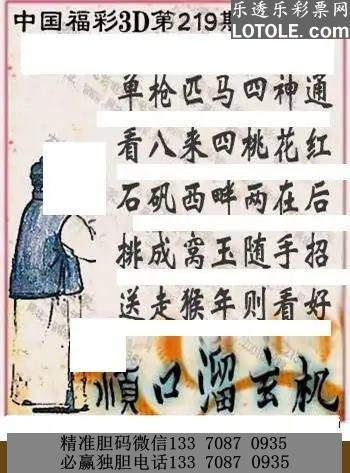 中国福彩3D第219期
乐透乐彩票网
LOTOLE.COM
单枪匹马四神通
看八来四桃花红
石矶西畔两在后
排成窝玉随手招
送走猴年则看好
顺口溜玄机
精准胆码微信133 7087 0935
必赢独胆电话133 7087 0935